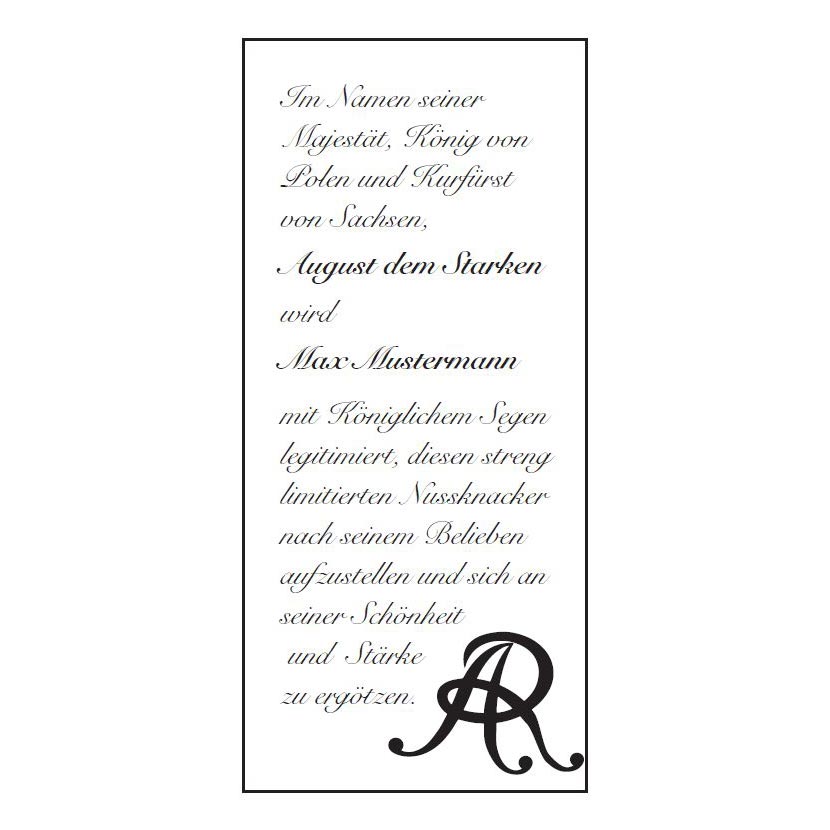 Im Namen seiner
Majestät, König von
Polen und Kurfürst
von Sachsen,
August dem Starken
wird
Max Mustermann
mit Königlichem Segen
legitimiert, diesen streng
limitierten Nussknacker
nach seinem Belieben
aufzustellen und sich an
seiner Schönheit
und Stärke
zu ergötzen.
AR